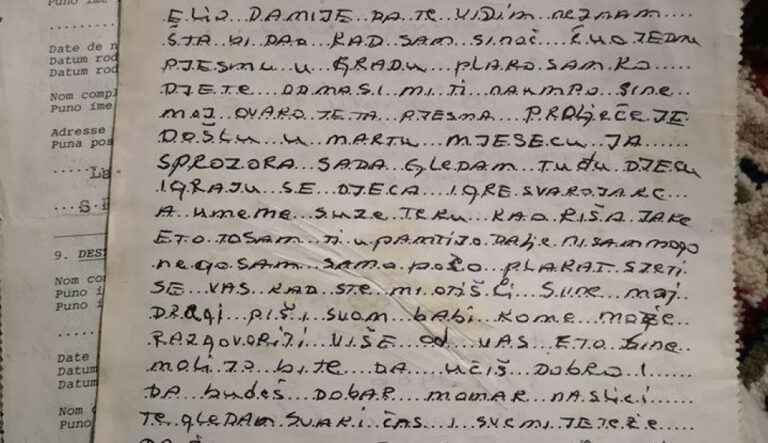 Puno ime
Date de n
Datum rod
Datum rod
Nom compl
Puno ime
Adresse
Puna pos
La
S.
9. DEST
Nom com
Puno i
Puno i
Date
Datum
Datum
Nom c
Puno
DAMIJE DA TE VIDIM NEZNAM
ŠTA BI DAO KAD SAM SINOČ ČUO JEDNU
PJESMU U GRADU PLAKO SAM KO
DJETE ODMA SI MI TI NAUMPO SINE
MOJ OVAKO JE TA PJESMA PROLJEČE JE
DOŠLU U MARTU MJESECU JA
SPROZORA SADA GLEDAM TUĐU DJECU
IGRAJU SE DJECA IGRE SVAKOJAKE
A UMEME SUZE TEKU KAO KIŠA JAKE
ETO TOSAM TI UPAMTIJO DALJE NISAM MOGO
NEGO SAM SAMO POČO PLAKAT SJETI
SE VAS KAD STE MI OTIŠLI SINE MOJ
DRAGI PIŠI SVOM BABI KOME MOŽE
RAZGOVORITI VIŠE OD VAS ETO SINE
DA UČIŠ DOBRO I
DA BUDEŠ DOBAR MOMAK NA SLICI
TE GLEDAM SVAKI ČAS I SVE MI JE TEŽE